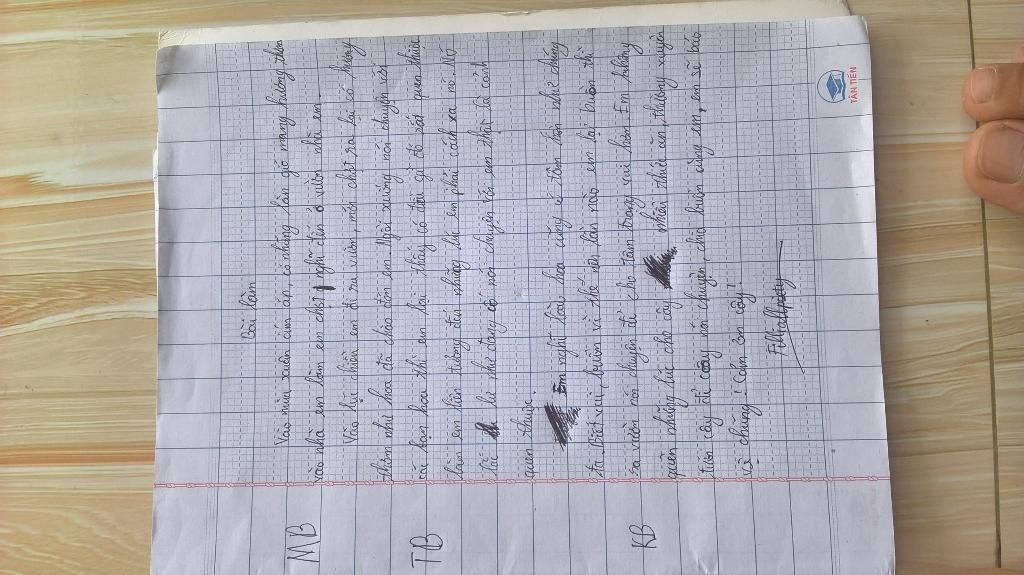 Bài làm
MB
Vào mùa xuân ấm áp, có những làn gió mang hương thơm
vào nhà em làm em chợt nghĩ đến ở vườn nhà em.
Vào lúc chiều em đi ra vườn, món chất sao lại có hương
thơm như hoa đã chào đón em. Ngồi xuống nói chuyện với
TB
các bạn hoa thì em lại thấy có thứ gì đó rất quen thuộc
làm em liên tưởng đến những lúc em phải cách xa nó. Nó
lắc lư như đang nói chuyện với em thật là cảnh
quen thuộc.
Em nghĩ loài hoa cũng có tâm hồn như chúng
ta. Biết vui, buồn vì thế nên lần nào em lại buồn thì
KB
ra vườn nói chuyện để cho tâm trạng vui hơn. Em không
quên những lúc cho cây nhiều thức ăn, thường xuyên
tiên cây để cây nói chuyện, chia buồn cùng em, em sẽ bảo
vệ chúng! Cảm ơn cây!
TÂN TIẾN